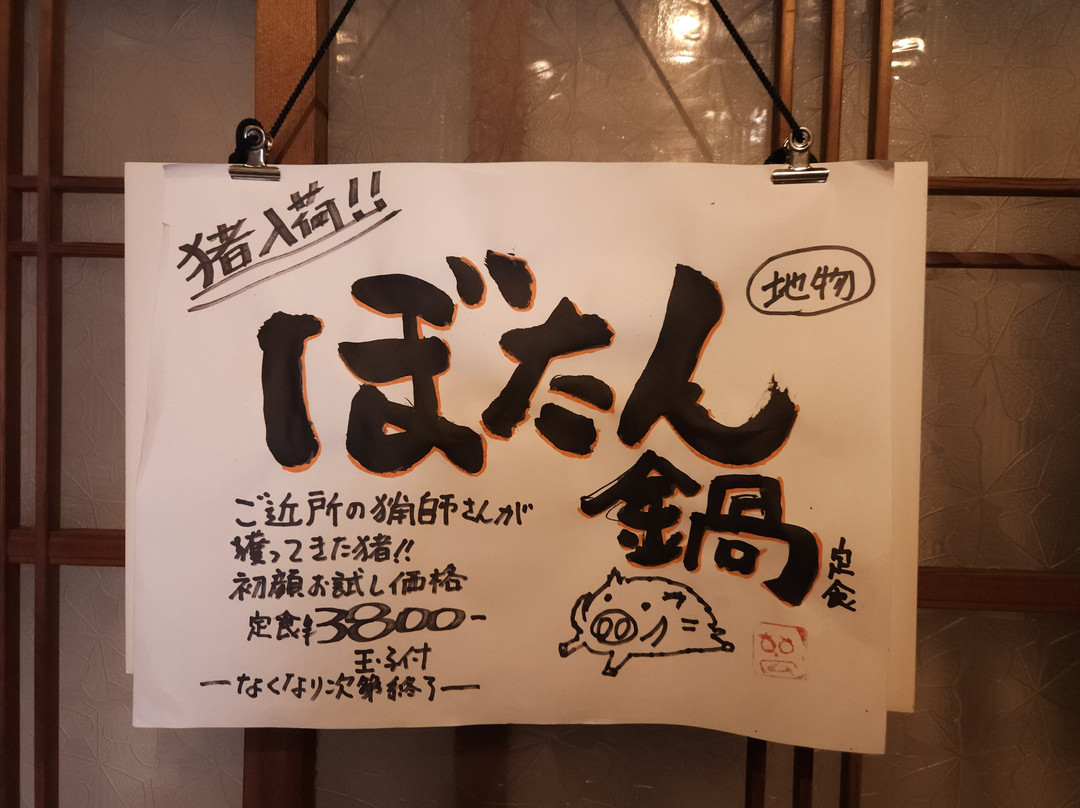 猪入荷!!
地物
ぼたん
鍋
定食
ご近所の猟師さんが
獲ってきた猪!!
初顔お試し価格
定食¥3800-
玉子付
―なくなり次第終了―